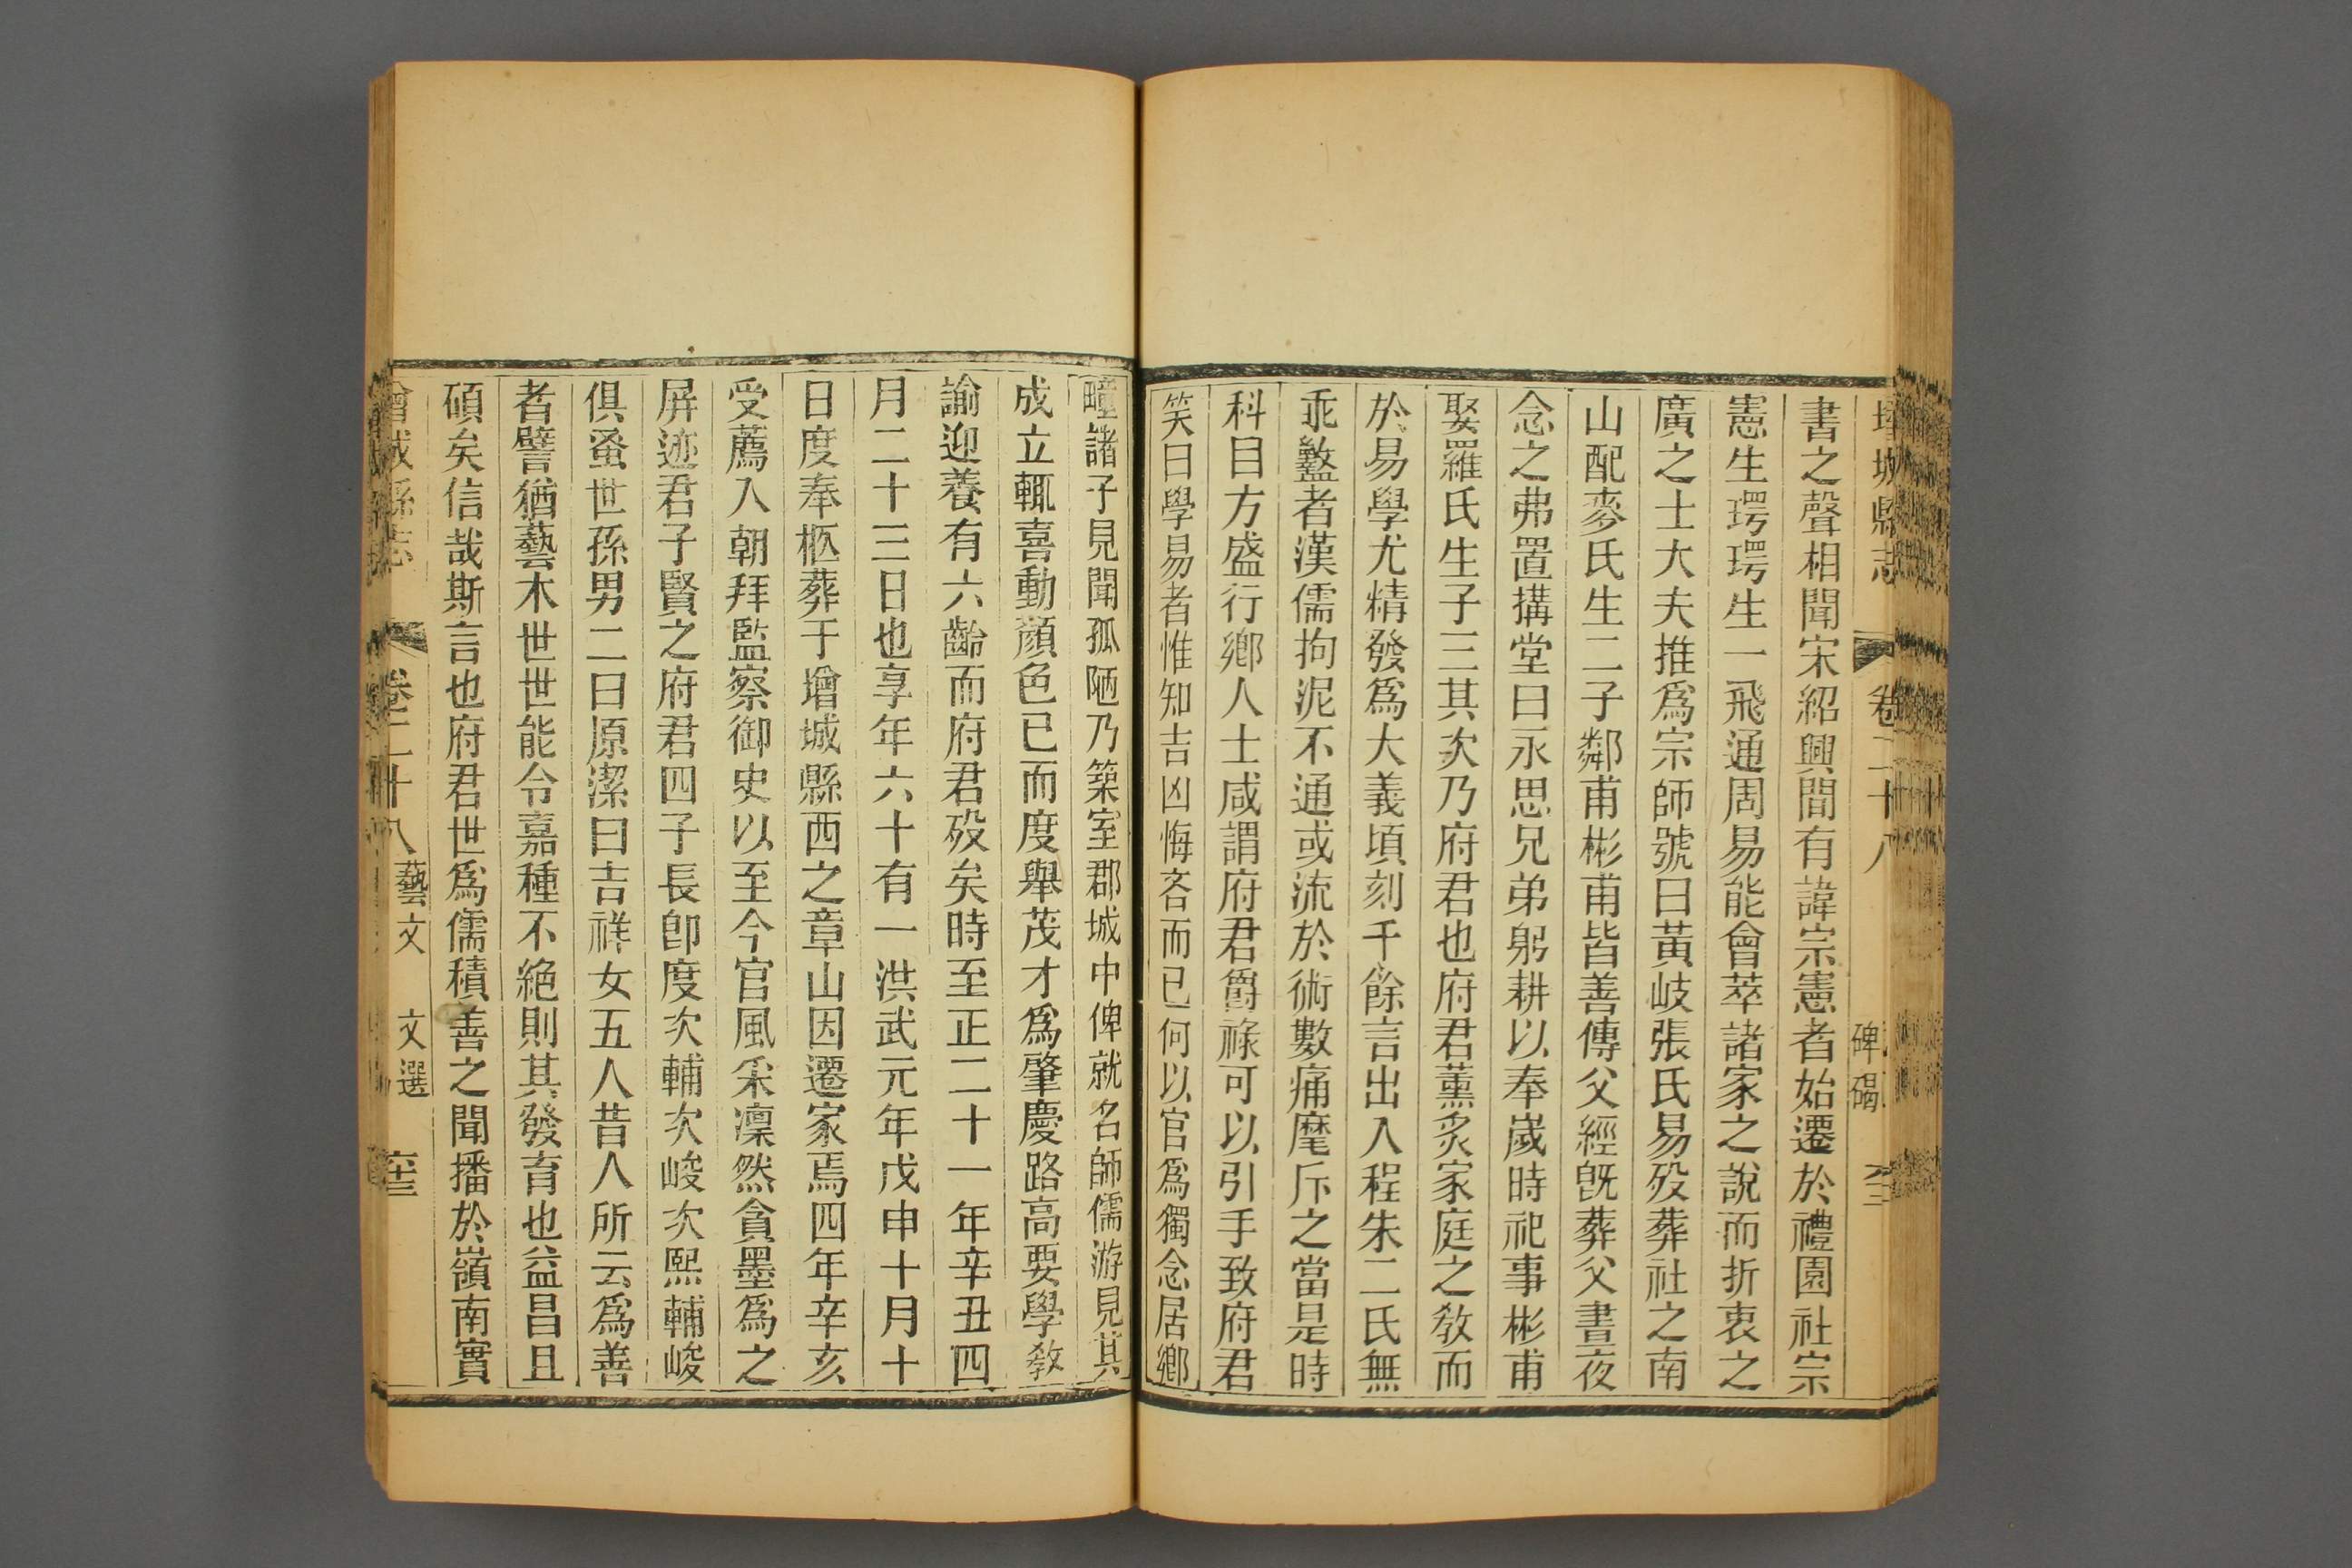 增城縣志
卷二十八
碑碣
書之聲相聞宋紹興間有諱宗憲者始遷於禮園社宗
憲生㻬㻬生一飛通周易能會萃諸家之說而折衷之
廣之士大夫推爲宗師號曰黃岐張氏易歿葬社之南
山配麥氏生二子鄰甫彬甫皆善傳父經旣葬父晝夜
念之弗置搆堂曰永思兄弟躬耕以奉歲時祀事彬甫
娶羅氏生子三其次乃府君也府君薰炙家庭之敎而
於易學尤精發爲大義頃刻千餘言出入程朱二氏無
乖盭者漢儒拘泥不通或流於術數痛麾斥之當是時
科目方盛行鄉人士咸謂府君爵祿可以引手致府君
笑曰學易者惟知吉凶悔吝而已何以官爲獨念居鄉
疃諸子見聞孤陋乃築室郡城中俾就名師儒游見其
成立輒喜動顏色已而度舉茂才爲肇慶路高要學敎
諭迎養有六齡而府君歿矣時至正二十一年辛丑四
月二十三日也享年六十有一洪武元年戊申十月十
日度奉柩葬于增城縣西之章山因遷家焉四年辛亥
受薦入朝拜監察御史以至今官風采凜然貪墨爲之
屏迹君子賢之府君四子長卽度次輔次峻次熙輔峻
俱蚤世孫男二曰原潔曰吉祥女五人昔人所云爲善
者譬猶藝木世世能令嘉種不絶則其發育也益昌且
碩矣信哉斯言也府君世爲儒積善之聞播於嶺南實
增城縣志
卷二十八
藝文
文選
六十三